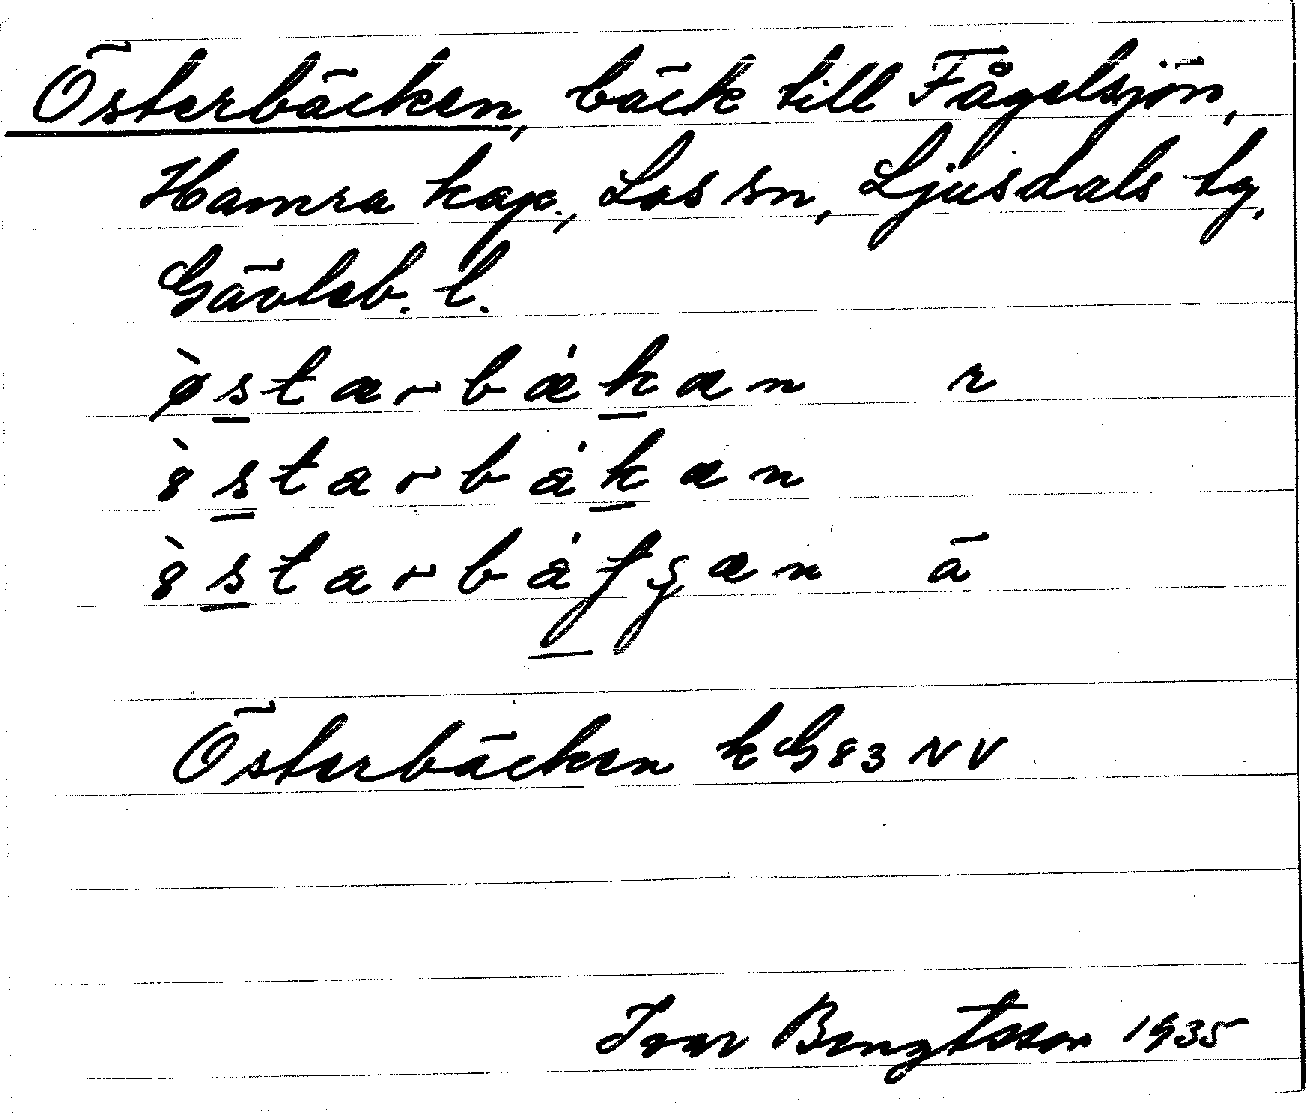 Österbäcken, bäck till Fågelsjön,
Hamra kap., Los sn, Ljusdals tg,
Gävleb. l.
ø̀starbækan r
8̀starbåkan
8̀starbåfʒan ä
Österbäcken k G83 NV
Ivar Bengtsson 1935